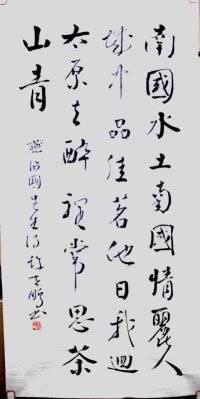 南國水土南國情麗人
城中品佳茗他日我迴
太原去醉裡常思茶
山青
燕治國先生詩 書